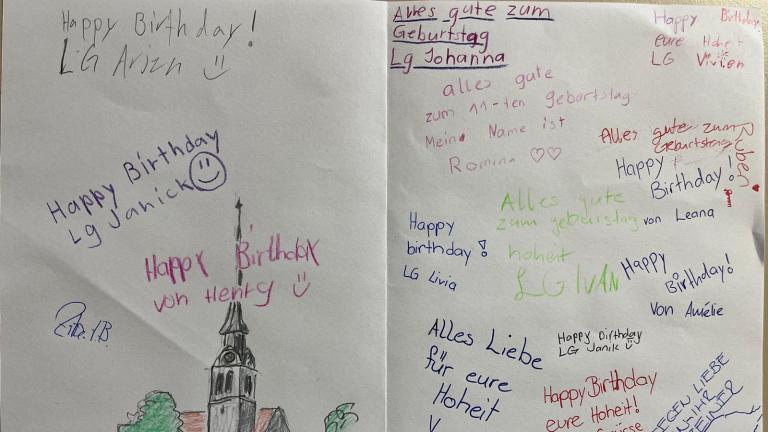 Happy Birthday!
LG Arien
Happy Birthday
Lg Janick
Happy Birthday
von Henry
Alles gute zum
Geburtstag
Lg Johanna
Happy Birthday
eure Hoheit
LG Vivien
alles gute
zum 11-ten geburtstag
Meine Name ist
Romina
Alles gute zum
Geburtstag
Ruben!
Happy
Birthday!
von Leana
Alles gute
zum geburtstag
hoheit
LG IVAN
Happy
birthday!
LG Livia
Happy
Birthday!
von Amélie
Alles Liebe
für eure
Hoheit
Happy Birthday
LG Janik
Happy Birthday
eure Hoheit!
LIEBE
IHR